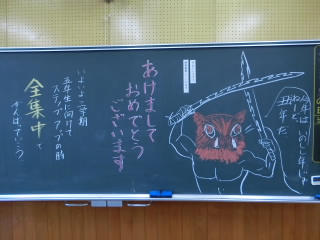 今年は いのしし年じゃ
ねーと、
丑年だ
あけまして
おめでとう
ございます
いよいよ三学期
五年生に向けて
ステップアップの時
全集中で
がんばっていこう